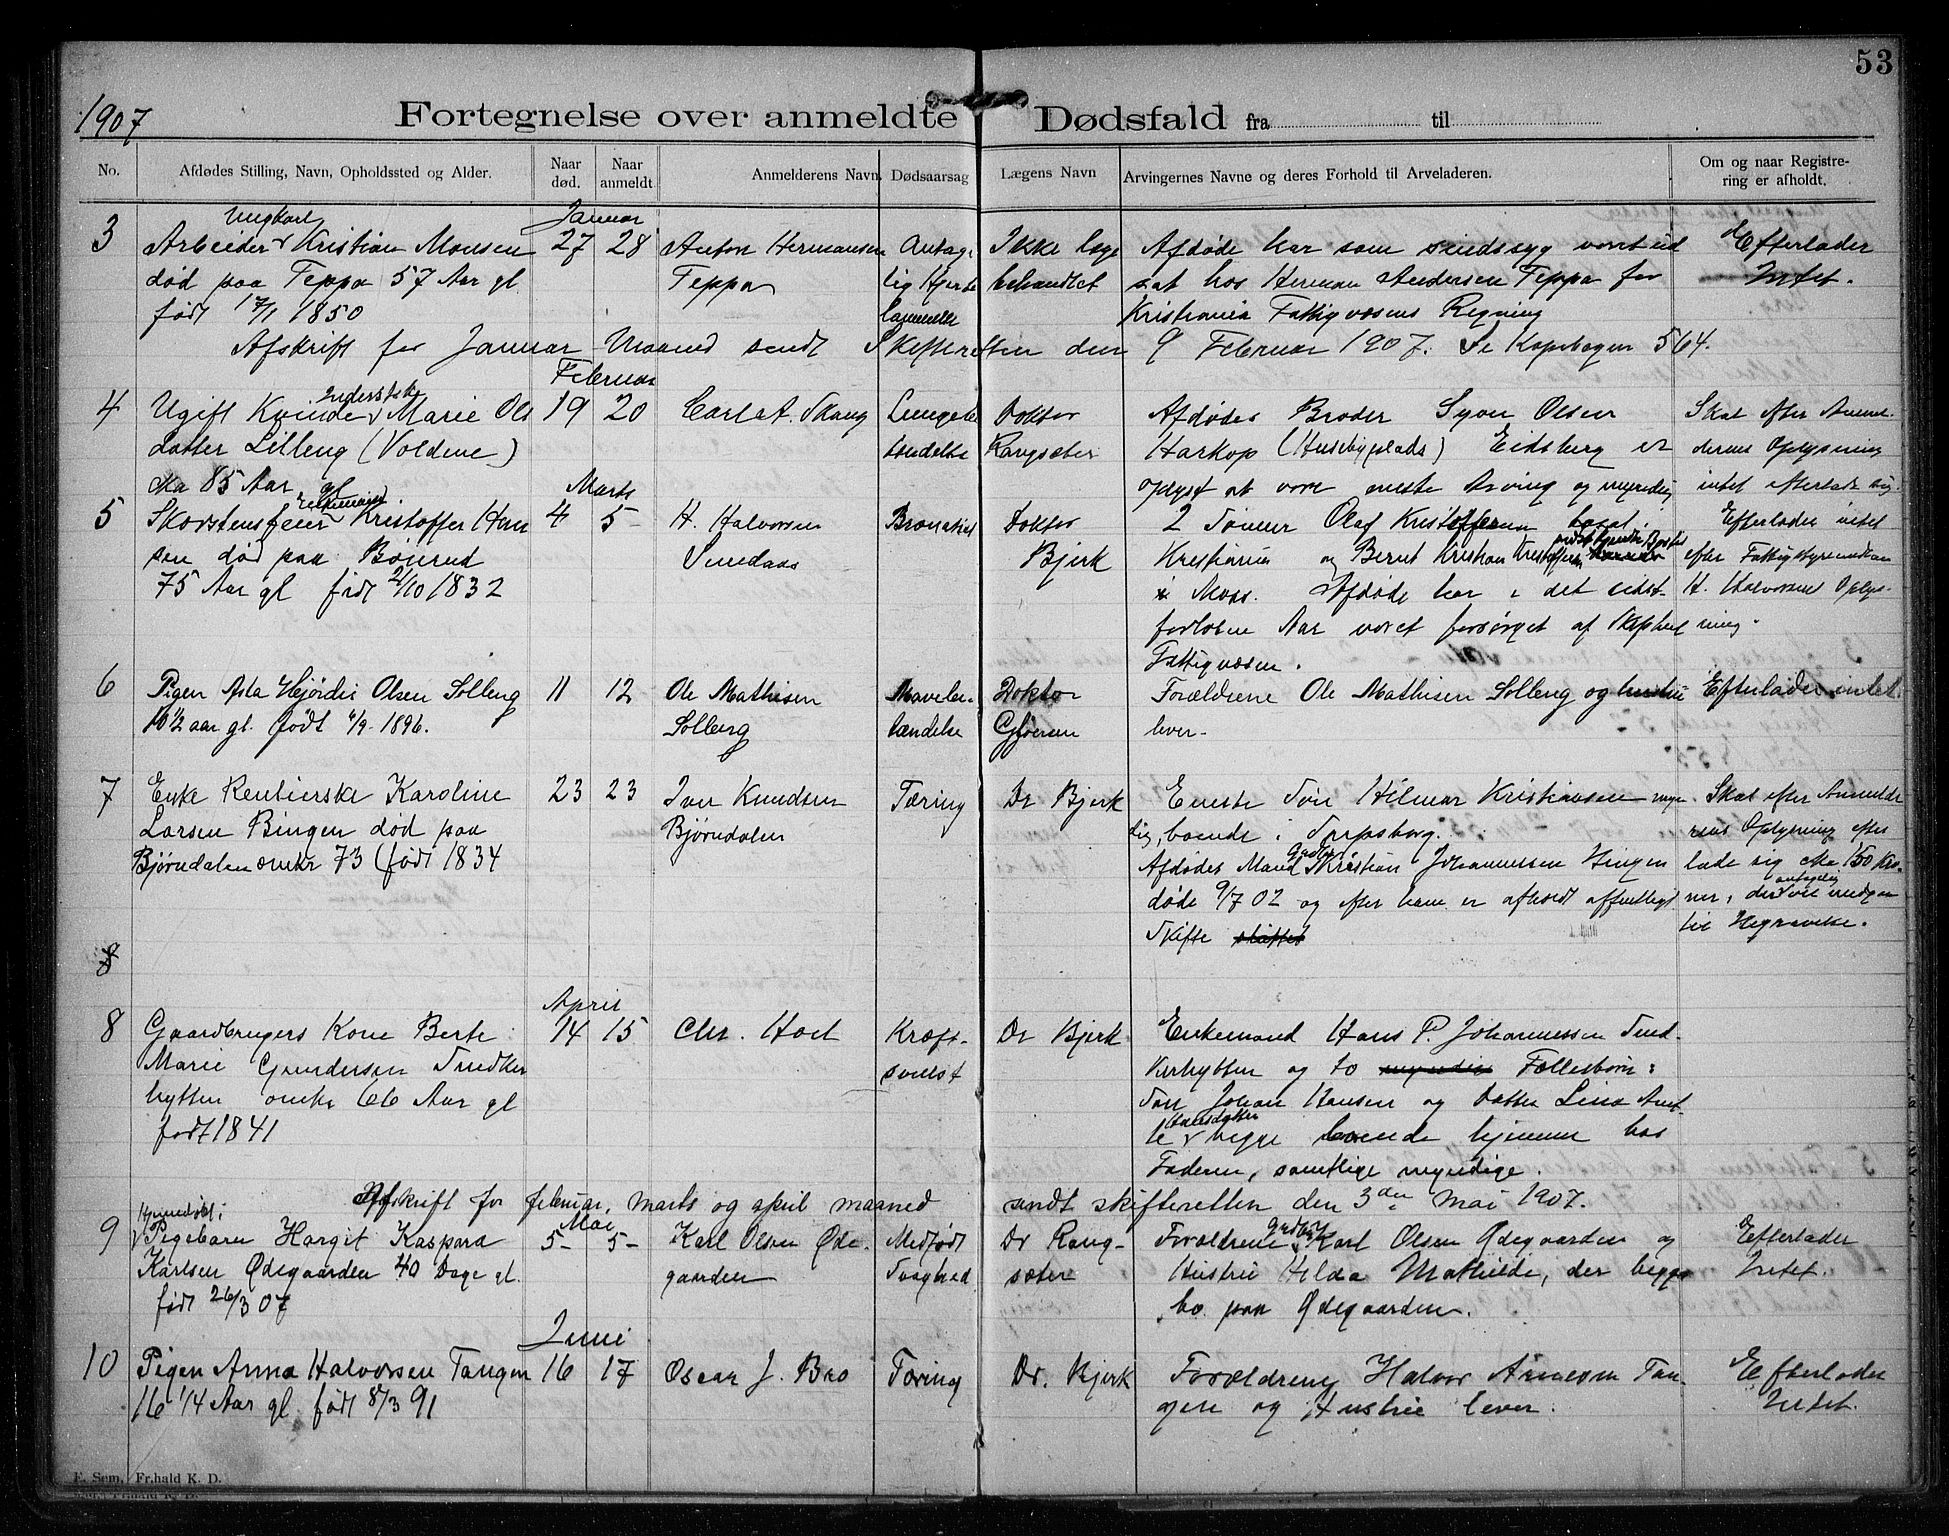 53
1907
Fortegnelse over anmeldte Dødsfald fra til
No.
Afdødes Stilling, Navn, Opholdssted og Alder.
Naar død.
Naar anmeldt
Anmelderens Navn,
Dødsaarsag
Lægens Navn
Arvingernes Navne og deres Forhold til Arveladeren.
Om og naar Registrering er afholdt.
Januar
3
Ungkarl
Arbeider Kristian Monsen
død paa Teppa 57 Aar gl
født 17/1 1850
27 28
Anton Hermansen
Teppa
Antage-
lig Hjerte
lammelse
Ikke læge
behandlet
Afdøde har som sindssyg vært ud
sat hos Herman Andersen Teppa for
Kristiania Fattigvæsens Regning
Efterlader
Intet.
Afskrift for Januar Maaned sendt Skifteretten den 9 Februar 1907. Se Kopibogen 564.
Februar
4
Inderstske
Ugift Kvinde Marie Ols
datter Lilleng (Voldene)
cka 85 Aar gl
19 20
Carl A. Skaug
Lungebe
tændelse
Doktor
Rangsæter
Afdødes Broder Syver Olsen
Harkop (Husebyplads) Eidsberg er
oplyst at være eneste Arving og myndig
Skal efter Anmel-
derens Oplysning
intet efterlade sig.
Marts
5
Enkemand
Skorstensfeier Kristoffer Han
sen død paa Bønerud
75 Aar gl født 21/10 1832
4 5
H. Halvorsen
Smedaas
Bronchit
Doktor
Bjerk
2 Sønner Olaf Kristoffersen bosat i
Kristiania og Bernt Kristian Kristoffersen
i Moss. Afdøde har i det sidst-
forløbne Aar været forsørget af
Fattigvæsen.
Efterlader intet
efter Fattigstyremedlem
H. Halvorsens Oplys-
ning.
6
Pigen Asta Hjørdis Olsen Solleng
10 1/2 aar gl. født 6/9 1896.
11 12
Ole Mathisen
Solberg
Mavebe-
tændelse
Doktor
Gløersen
Forældrene Ole Mathisen Solleng og hustru
lever.
Efterlader intet.
7
Enke Rentierske Karoline
Larsen Bingen død paa
Bjørndalen omkr 73 (født 1834
23 23
Iver Knudsen
Bjørndalen
Tæring
Dr Bjerk
Eneste Søn Hilmar Kristiansen myn
dig, boende i Sarpsborg.
Afdødes Mand Gaardbr Kristian Johannessen Bingen
døde 9/7 02 og efter ham er afholdt offentligt
Skifte sluttet
Skal efter Anmelde
rens Oplysning efter
lade sig cka 150 Kro-
ner, der antagelig vil medgaa
til Begravelse.
8
April
8
Gaardbrugers Kone Berte
Marie Gundersen Sndker
hytten omkr 66 Aar gl
født 1841
14 15
Chr. Hoel
Kræft-
svulst
Dr Bjerk
Enkemand Hans P. Johannessen Sned-
kerhytten og to myndige Fællesbørn:
Søn Johan Hansen og datter Lina Amt-
Hansdatter
begge boende hjemme hos
Faderen, samtlige myndige.
Afskrift for februar, marts og april maaned sendt skifteretten den 3die mai 1907.
Mai
9
Hjemmedøbt
Pigebarn Margit Kaspara
Karlsen Ødegaarden 40 Dage gl.
født 26/3 07
5 5
Karl Olsen Øde-
gaarden
Medfødt
Svaghed
Dr Rang-
sæter
Forældrene Gaardbr Karl Olsen Ødegaarden og
Hustru Hilda Mathilde, der begge
bo paa Ødegaarden.
Efterlader
Intet.
Juni
10
Pigen Anna Halvorsen Tangen
16 1/4 Aar gl født 8/3 91
16 17
Oscar J. Bro
Tæring
Dr. Bjerk
Forældrene Halvor Arnesen Tan-
gen og Hustru lever.
Efterlader
Intet.
E. Sem, Fr.hald K. D.